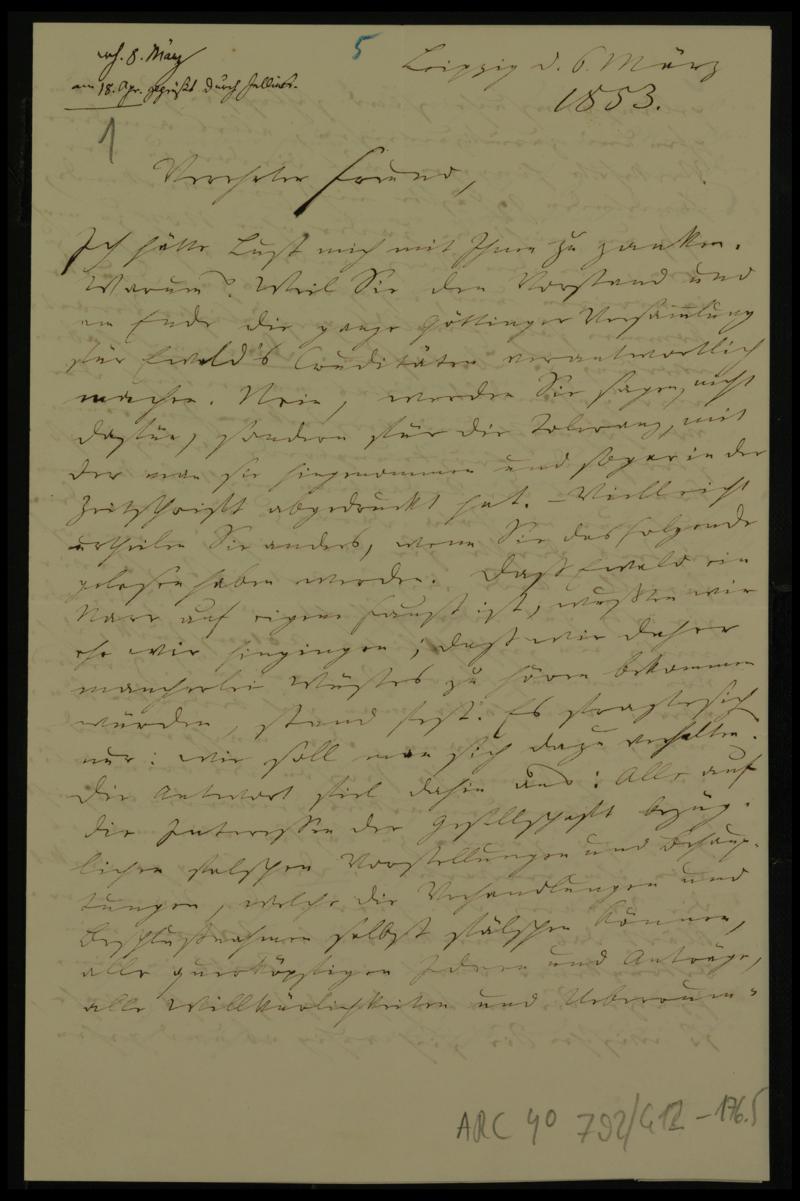 erh. 8. März
am 18. Apr. gegrüßt durch Jellinek.
5
Leipzig d. 6. März
1853.
1
Verehrter Freund,
Ich hätte Lust mich mit Ihnen zu zanken.
Warum? Weil Sie den Vorstand und
am Ende die ganze Göttinger Versamlung
für Ewald's Cruditäten verantwortlich
machen. Nein, werden Sie sagen, nicht
dafür, sondern für die Toleranz, mit
der man sie hingenommen und sogar in der
Zeitschrift abgedruckt hat. – Vielleicht
urtheilen Sie anders, wenn Sie das Folgende
gelesen haben werden. Daß Ewald ein
Narr auf eigene Faust ist, wußten wir
ehe wir hingingen; daß wir daher
mancherlei Wüstes zu hören bekommen
würden, stand fest. Es fragte sich
nur: wie soll man sich dazu verhalten.
Die Antwort fiel dahin aus: Alle auf
die Interessen der Gesellschaft bezüg-
lichen falschen Vorstellungen und Behaup-
tungen, welche die Verhandlungen und
Beschlußnahmen selbst fälschen können,
alle querköpfigen Ideen und Anträge,
alle Willkürlichkeiten und Ueberrum-
ARC 40 792/G12-176.5